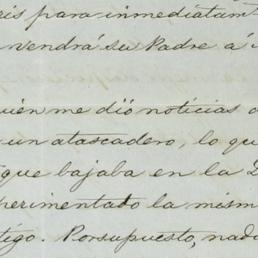 ris para inmediatam
vendrá su Padre á
uién me dió noticias
un atascadero, lo qu
que bajaba en la D
perimentado la mism
tigo. Por supuesto, nad